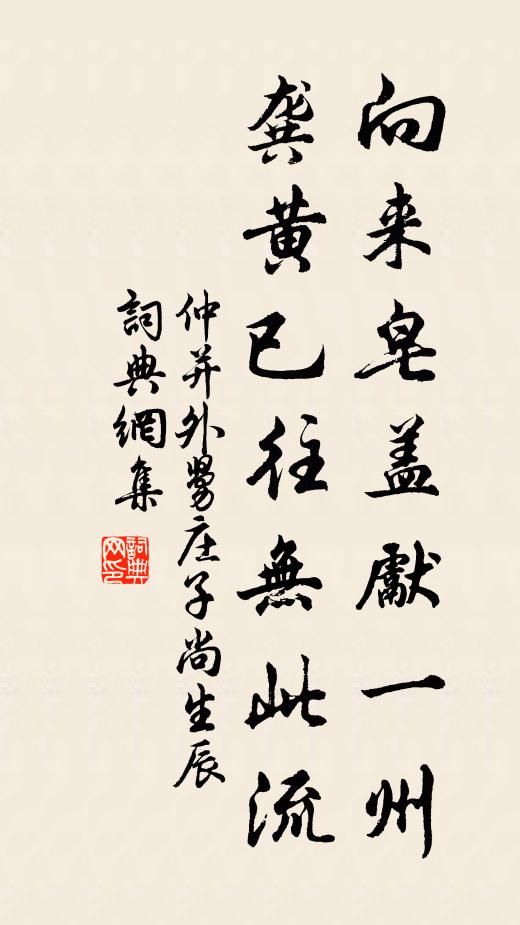 向来皂盖獻一州
龚黄已往無此流
仲并外舅庄子尚生辰
詞典網集
詞典网印